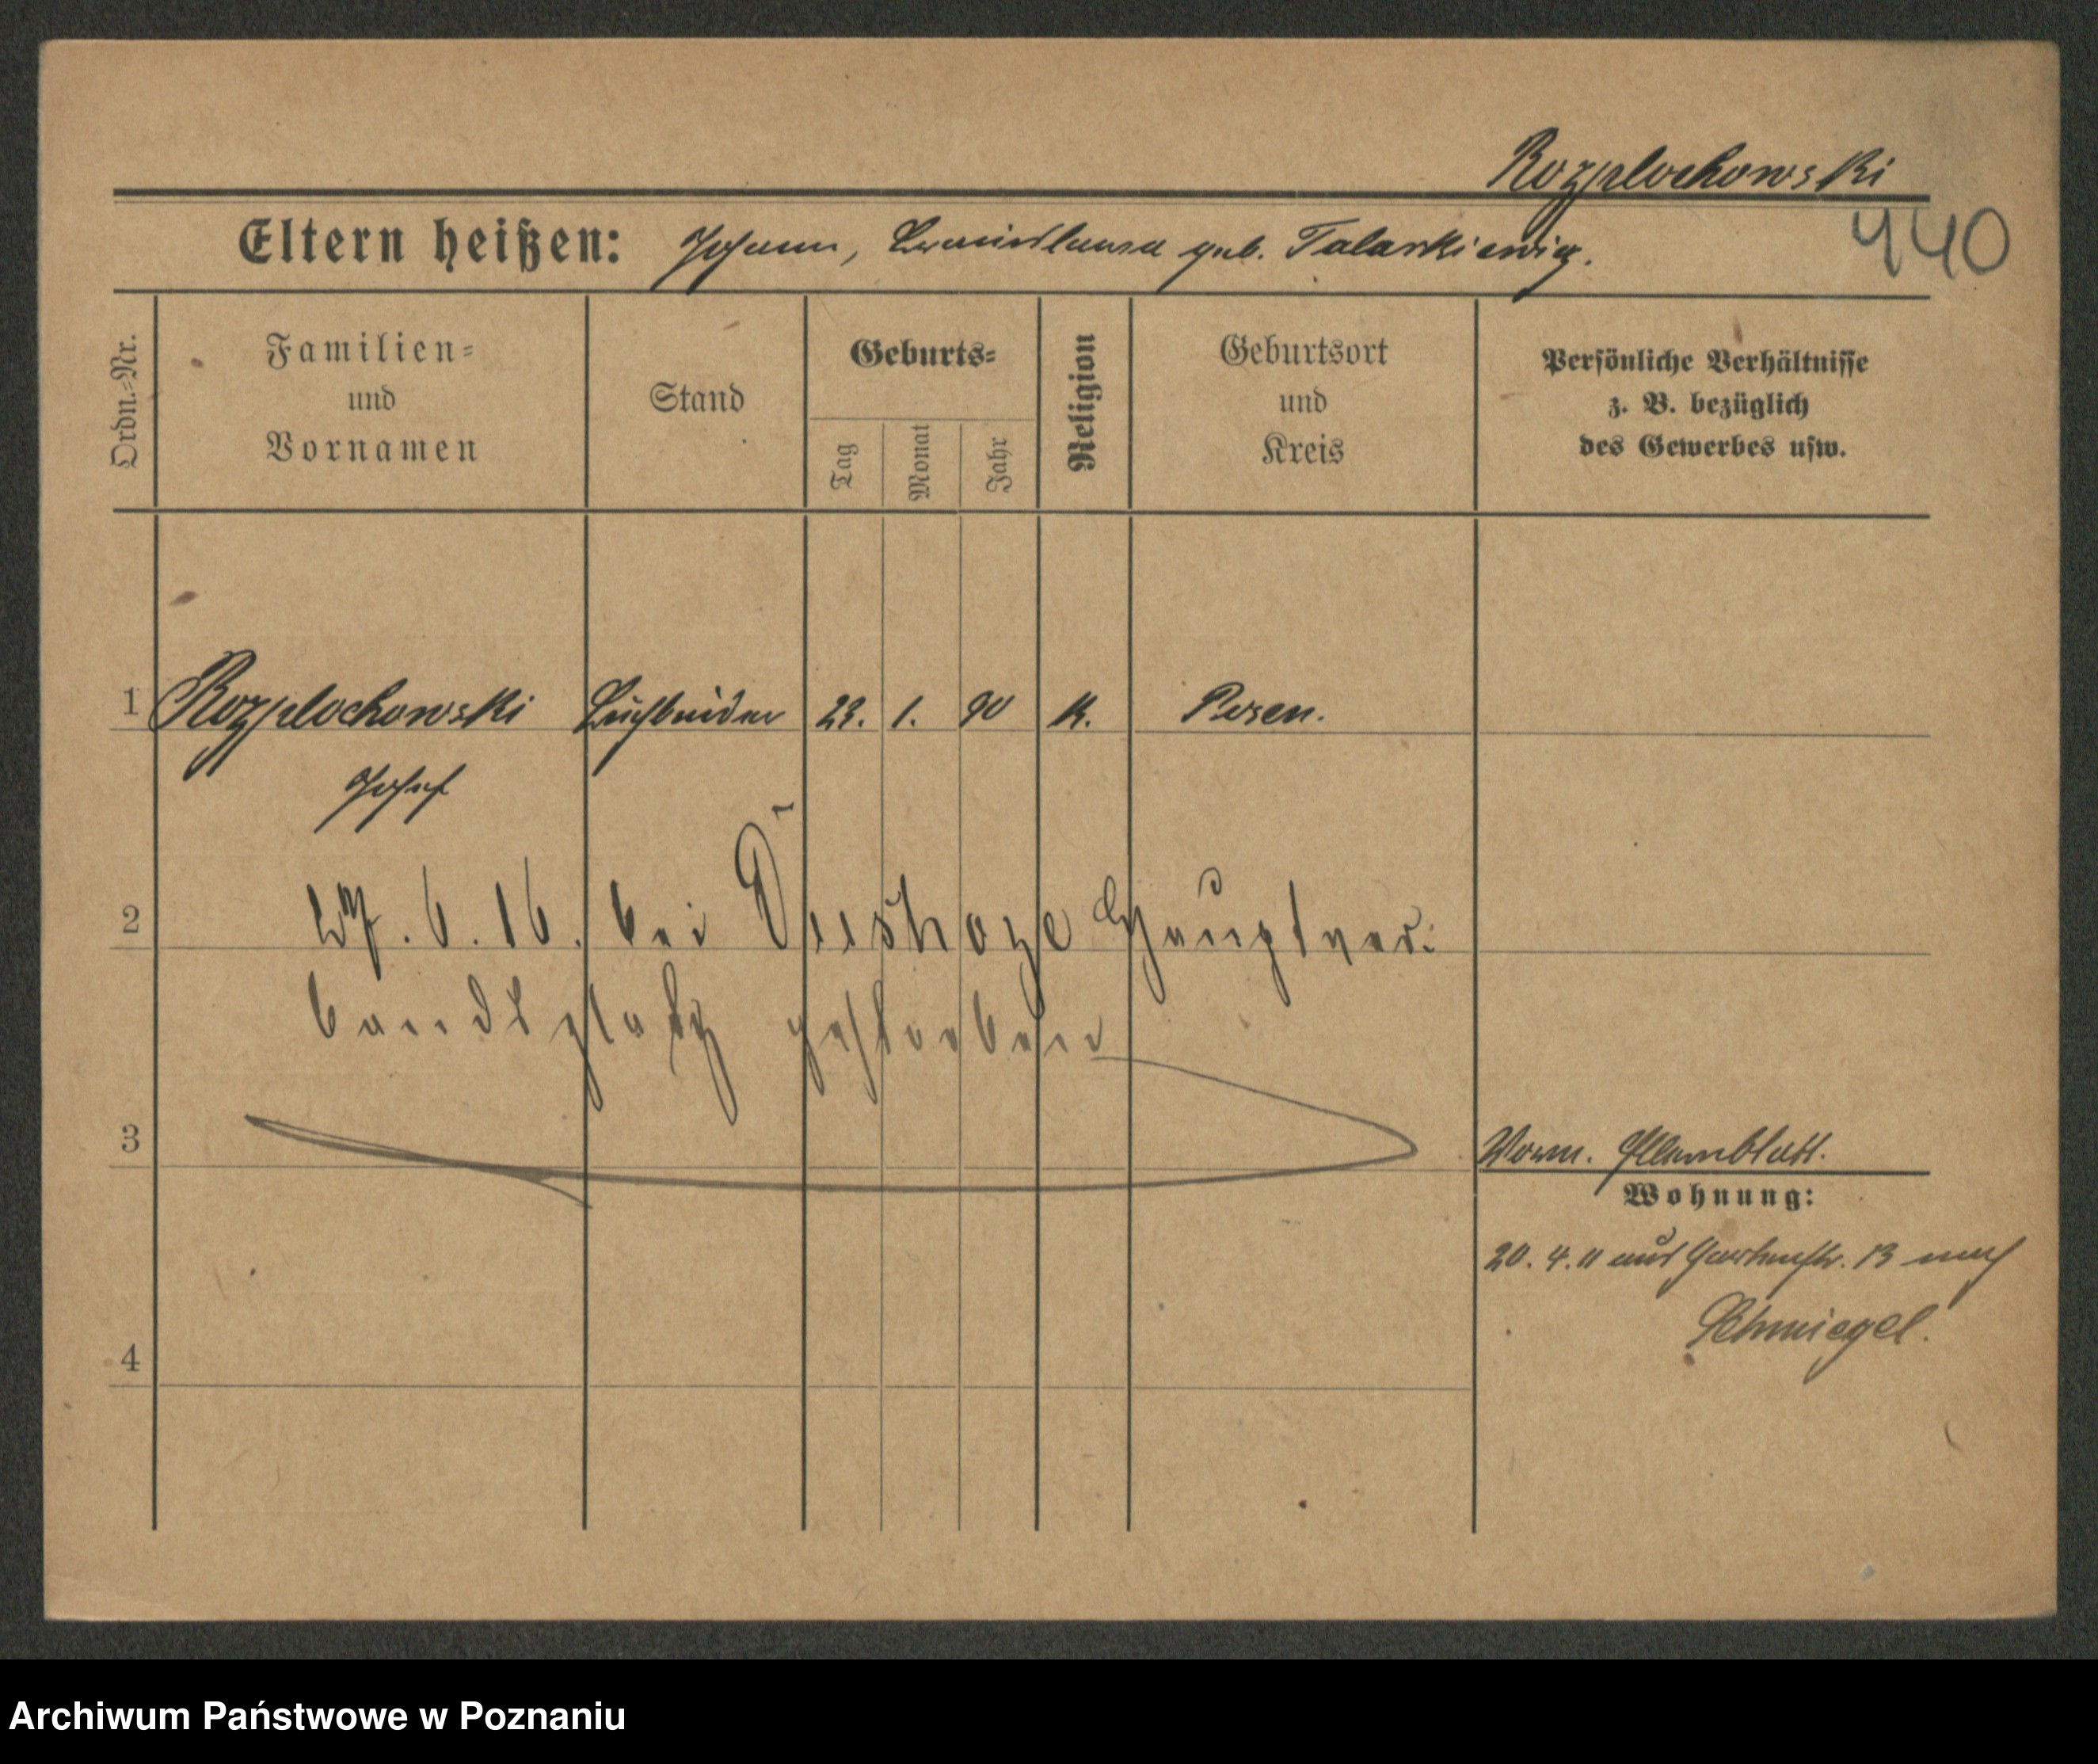 Rozplochowski
440
Eltern heißen: Johann, geb. Talarkiewicz.
Ordn.-Nr.
Familien- und Vornamen
Stand
Geburts-
Tag
Monat
Jahr
Religion
Geburtsort und Kreis
Persönliche Verhältnisse z. B. bezüglich des Gewerbes usw.
1 Rozplochowski Buchbinder 23. 1. 90 K. Posen.
Josef
2 27. 6. 16. bei Hauptver:
bandsplatz gestorben
3
Vorm. Stammblatt.
Wohnung:
20. 4. 11 aus Gartenstr. 13 nach
Schmiegel.
4
Archiwum Państwowe w Poznaniu